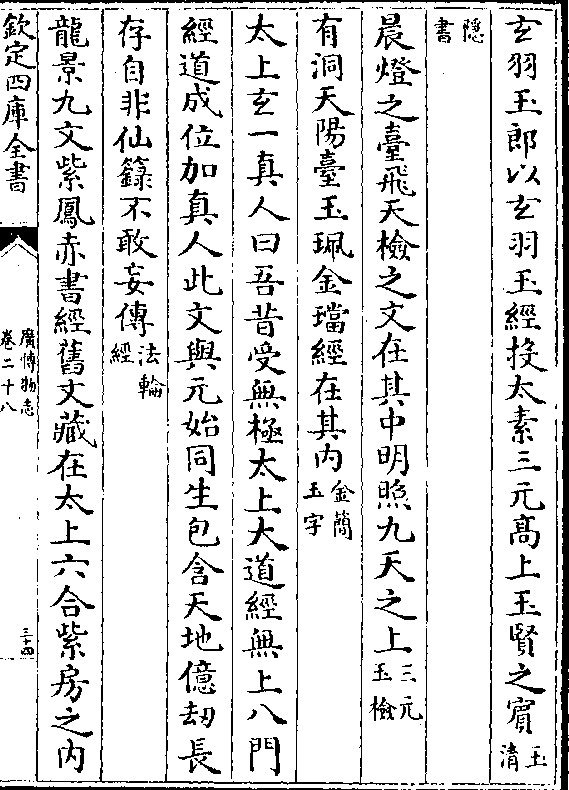 玄羽玉郎以玄羽玉經投太素三元髙上玉賢之賔玉清
隱書
晨燈之臺飛天檢之文在其中明照九天之上三元玉檢
有洞天陽臺玉珮金璫經在其内金簡玉字
太上玄一真人曰吾昔受無極太上大道經無上八門
經道成位加真人此文與元始同生包含天地億刧長
存自非仙籙不敢妄傳法輪經
龍景九文紫鳳赤書經舊文藏在太上六合紫房之内
欽定四庫全書
廣博物志
卷二十八
三十四